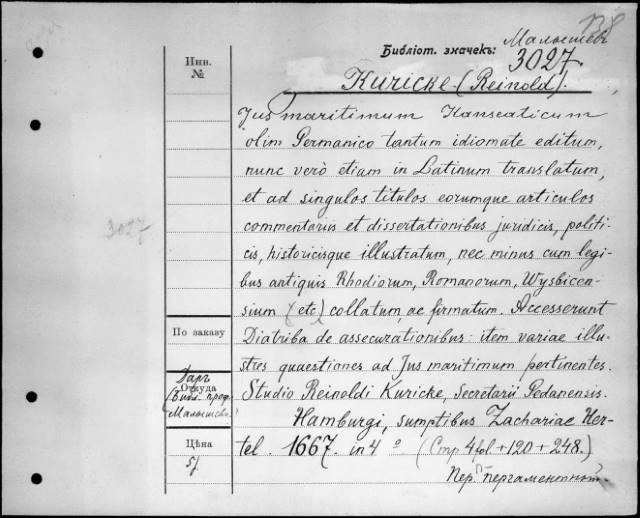 Малышевъ
Библіот. значекъ:
3027.
Инв.
№
Kuricke (Reinold).
Jus maritimum Hanseaticum
olim Germanico tantum idiomate editum,
nunc verò etiam in Latinum translatum,
et ad singulos titulos eorumque articulos
3027
commentariis et dissertationibus juridicis, politi-
cis, historicisque illustratum, nec minus cum legi-
bus antiquis Rhodiorum, Romanorum, Wysbicen-
sium (etc) collatum, ac firmatum. Accesserunt
По заказу
Diatriba de assecurationibus: item variae illu-
stres quaestiones ad Jus maritimum pertinentes.
Даръ
Откуда
(Библ. проф.
Малышева)
Studio Reinoldi Kuricke, Secretarii Gedanensis.
Hamburgi, sumptibus Zachariae Her-
Цѣна
5 f.
tel. 1667. in 4º (Стр. 4 fol. + 120 + 248.)
Пер. пергаментный.